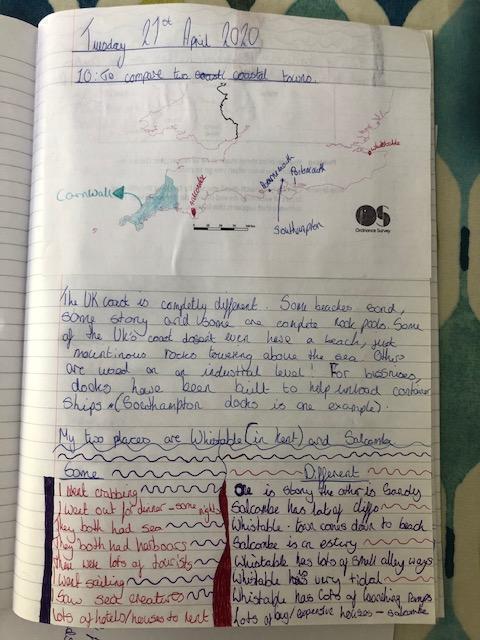 Tuesday 21st April 2020
LO: To compare two coast coastal towns.
Whitstable
Bournemouth
Portsmouth
Cornwall
Salcombe
Southampton
OS
Ordnance Survey
The UK coast is completly different. Some beaches sand,
some stony and some are complete rock pools. Some
of the UK's coast doesnt even have a beach, just
mountinous rocks towering above the sea. Other
are used on an industrial level! For bissnises,
docks have been built to help unload container
ships (Southampton docks is one example).
My two places are Whistable (in Kent) and Salcombe
Same
Different
I went crabbing
One is stony the other is Sandy
I went out for dinner - some nights
Salcombe has lots of cliffs
They both had sea
Whistable - town comes down to beach
They both had harbours
Salcombe is an estury
There were lots of tourists
Whistable has lots of small alley ways
Went sailing
Whistable very tidal
Saw sea creatures
Whistable has lots of launching ramps
Lots of hotels/houses to rent
Lots of big/expensive houses - salcombe